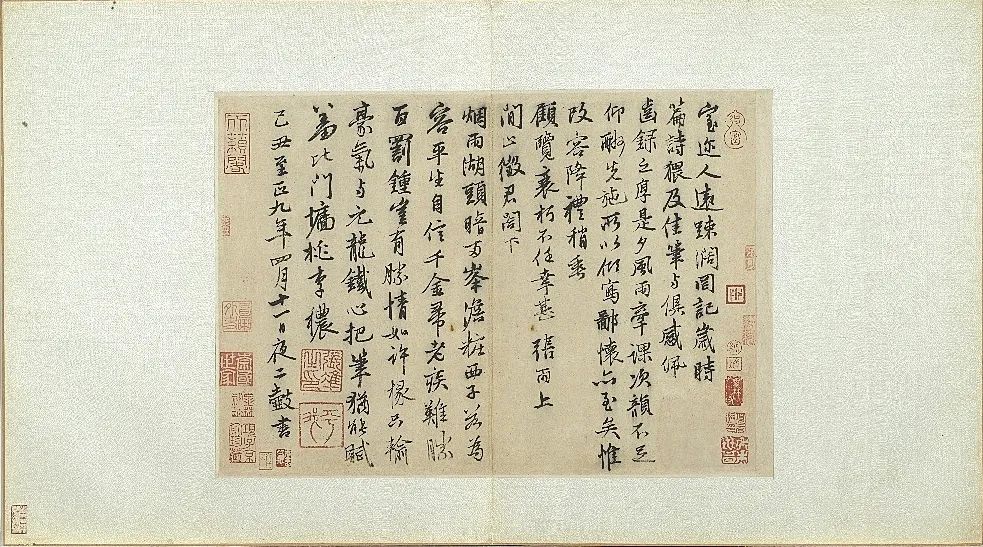 室迩人遠踈濶罔記歳時
篇詩猥及佳筆与俱感佩
齒錄之厚是夕風雨章課次韻不足
仰酬先施所以傾寫鄙懷亦至矣惟
改容降禮稍垂
顧覽衰朽不任幸甚 張雨上
間止徵君閤下
烟雨湖頭暗两峯澹粧西子若為
容平生自信千金帚老疾難勝
百罰鍾豈有勝情如許掾只輸
豪氣与元龍鐵心把筆猶能賦
羞比門墻桃李穠
己丑至正九年四月十一日夜二鼓書